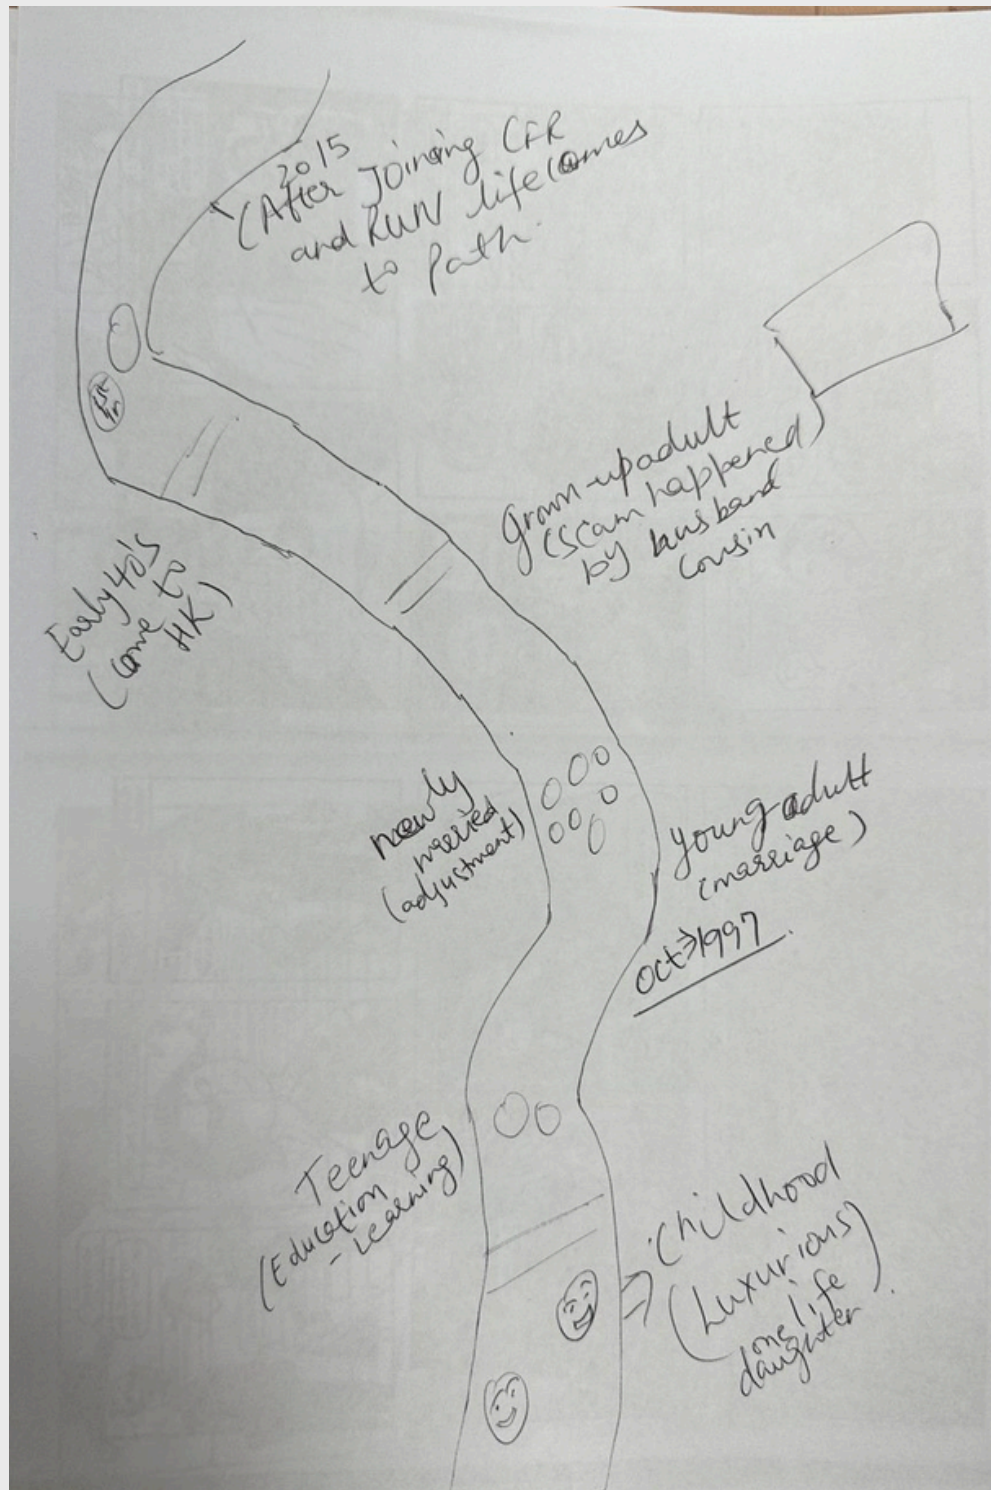 2015
(After joining CFR
and RUN life comes
to path.
Grown-up adult
(scam happened)
by husband
cousin
Early 40's
(come to
HK)
newly
married
(adjustment)
young adult
(marriage)
Oct→1997.
Teenage
(Education
- Learning)
Childhood
(Luxurious)
one life
daughter.